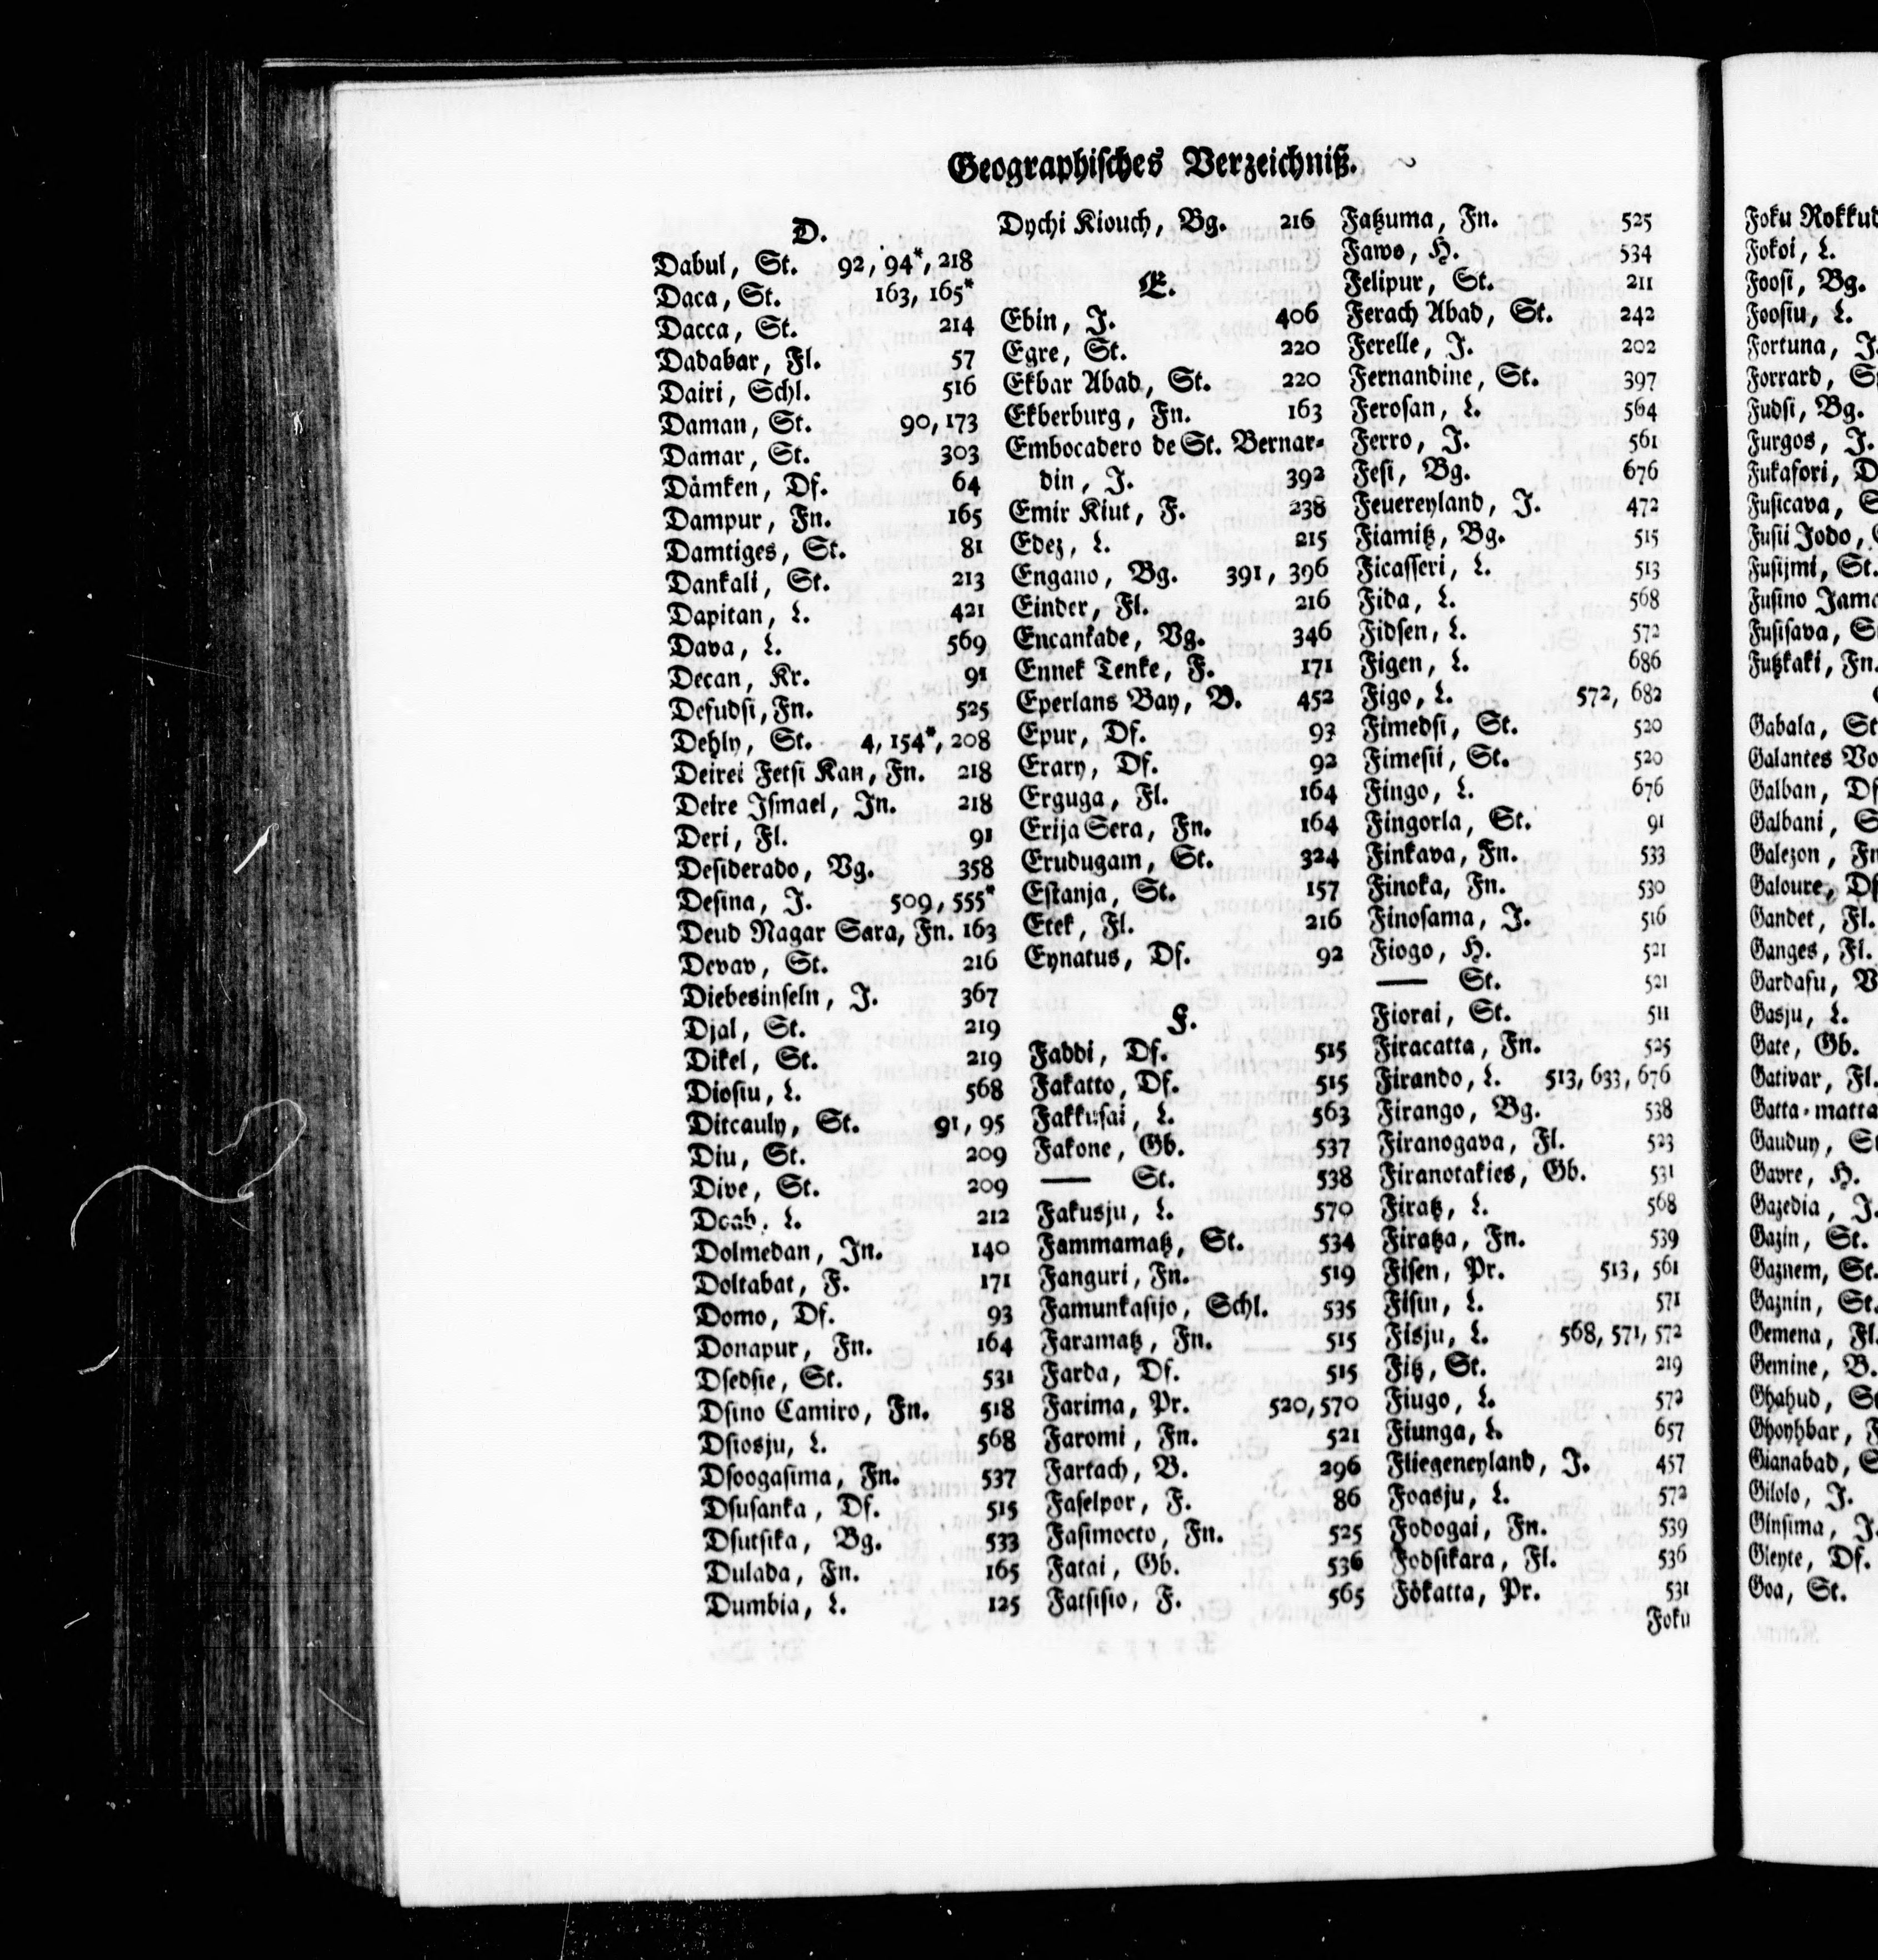 Geographisches Verzeichniß.
D.
Dabul, St. 92, 94*, 218
Daca, St. 163, 165*
Dacca, St. 214
Dadabar, Fl. 57
Dairi, Schl. 516
Daman, St. 90, 173
Damar, St. 303
Dämken, Df. 64
Dampur, Fn. 165
Damtiges, St. 81
Dankali, St. 213
Dapitan, L. 421
Dava, L. 569
Decan, Kr. 91
Defudsi, Fn. 525
Dehly, St. 4, 154*, 208
Deirei Fetsi Kan, Fn. 218
Deire Ismael, Jn. 218
Deri, Fl. 91
Desiderado, Vg. 358
Desina, J. 509, 555*
Deud Nagar Sara, Fn. 163
Devav, St. 216
Diebesinseln, J. 367
Djal, St. 219
Dikel, St. 219
Diosiu, L. 568
Ditcauly, St. 91, 95
Diu, St. 209
Dive, St. 209
Doab, L. 212
Dolmedan, Jn. 140
Doltabat, F. 171
Domo, Df. 93
Donapur, Fn. 164
Dsedsie, St. 531
Dsino Camiro, Fn. 518
Dsiosju, L. 568
Dsoogasima, Fn. 537
Dsusanka, Df. 515
Dsutsika, Bg. 533
Dulada, Fn. 165
Dumbia, L. 125
Dychi Kiouch, Bg. 216
E.
Ebin, J. 406
Egre, St. 220
Ekbar Abad, St. 220
Ekberburg, Fn. 163
Embocadero de St. Bernar-
din, J. 392
Emir Kiut, F. 238
Edez, L. 215
Engano, Bg. 391, 396
Einder, Fl. 216
Encankade, Vg. 346
Ennek Tenke, F. 171
Eperlans Bay, B. 452
Epur, Df. 93
Erary, Df. 92
Erguga, Fl. 164
Erija Sera, Fn. 164
Erudugam, St. 324
Estanja, St. 157
Etek, Fl. 216
Eynatus, Df. 92
F.
Faddi, Df. 515
Fakatto, Df. 515
Fakkusai, L. 563
Fakone, Gb. 537
—— St. 538
Fakusju, L. 570
Fammamatz, St. 534
Fanguri, Fn. 519
Famunkasijo, Schl. 535
Faramatz, Fn. 515
Farda, Df. 515
Farima, Pr. 520, 570
Faromi, Fn. 521
Fartach, B. 296
Faselpor, F. 86
Fasimocto, Fn. 525
Fatai, Gb. 536
Fatsisio, F. 565
Fatzuma, Fn. 525
Fawo, H. 534
Felipur, St. 211
Ferach Abad, St. 242
Ferelle, J. 202
Fernandine, St. 397
Ferosan, L. 564
Ferro, J. 561
Fesi, Bg. 676
Feuereyland, J. 472
Fiamitz, Bg. 515
Ficasseri, L. 513
Fida, L. 568
Fidsen, L. 572
Figen, L. 686
Figo, L. 572, 682
Fimedsi, St. 520
Fimesii, St. 520
Fingo, L. 676
Fingorla, St. 91
Finkava, Fn. 533
Finoka, Fn. 530
Finosama, J. 516
Fiogo, H. 521
—— St. 521
Fiorai, St. 511
Firacatta, Fn. 525
Firando, L. 513, 633, 676
Firango, Bg. 538
Firanogava, Fl. 523
Firanotakies, Gb. 531
Firatz, L. 568
Firatza, Fn. 539
Fisen, Pr. 513, 561
Fisin, L. 571
Fisju, L. 568, 571, 572
Fitz, St. 219
Fiugo, L. 572
Fiunga, L. 657
Fliegeneyland, J. 457
Foasju, L. 572
Fodogai, Fn. 539
Fodsikara, Fl. 536
Fökatta, Pr. 531
Foku
Fokoi, L.
Foosi, Bg.
Foosiu, L.
Fortuna, J.
Forrard,
Fudsi, Bg.
Furgos, J.
Fukafori,
Fusicava,
Fusii Jodo,
Fusijmi, St.
Fusino
Fusisava,
Futzkaki, Fn.
Gabala, St
Galantes
Galban, Df
Galbani,
Galezon, Fn
Galoure, Df
Gandet, Fl.
Ganges, Fl.
Gardafu,
Gasju, L.
Gate, Gb.
Gativar, Fl.
Gatta-matta
Gauduy,
Gavre, H.
Gazedia, J.
Gazin, St.
Gaznem, St.
Gaznin, St.
Gemena, Fl.
Gemine, B.
Ghahud,
Ghoyhbar,
Gianabad,
Gilolo, J.
Ginsima, J.
Gleyte, Df.
Goa, St.